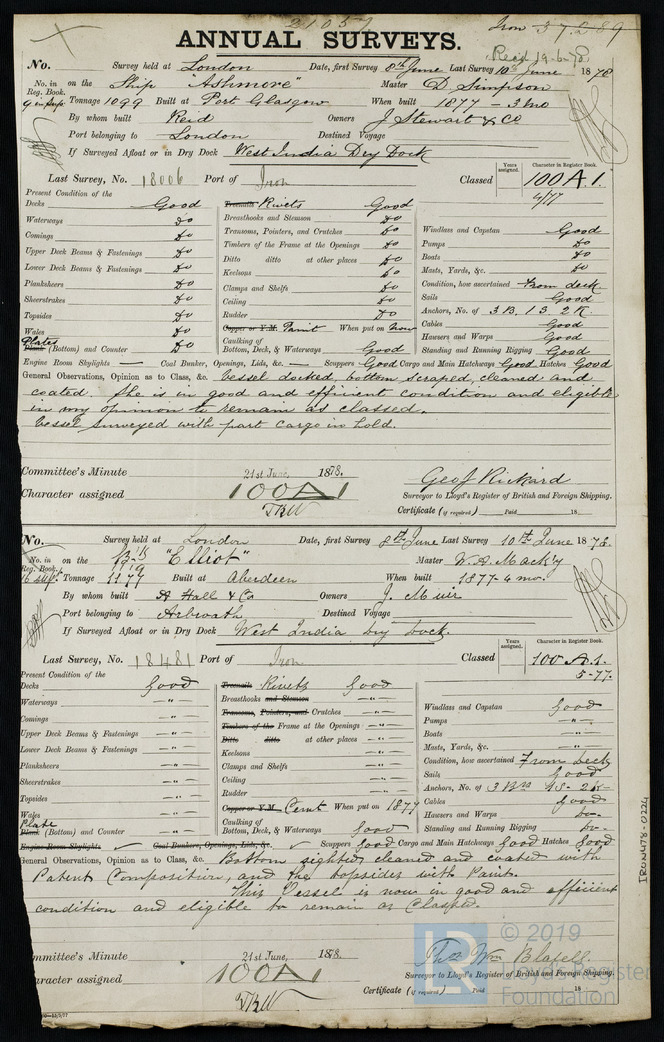 21057
Iron 37289
ANNUAL SURVEYS.
Recd 19-6-78
No. Survey held at London Date, first Survey 8th June Last Survey 10th June 1878
No. in Reg. Book. on the Ship "Ashmore" Master D. Simpson
Tonnage 1099 Built at Port Glasgow When built 1877 - 3 mo
By whom built Reid Owners J Stewart & Co
Port belonging to London Destined Voyage
If Surveyed Afloat or in Dry Dock West India Dry Dock
Last Survey, No. 18006 Port of Iron Classed Years assigned. Character in Register Book. 100 A.1.
4/77
Present Condition of the
Decks Good
Waterways Do
Comings Do
Upper Deck Beams & Fastenings Do
Lower Deck Beams & Fastenings Do
Planksheers Do
Sheerstrakes Do
Topsides Do
Wales Do
Plates Plank (Bottom) and Counter Do
Treenails Rivets Good
Breasthooks and Stemson Do
Transoms, Pointers, and Crutches Do
Timbers of the Frame at the Openings Do
Ditto ditto at other places Do
Keelsons Do
Clamps and Shelfs Do
Ceiling Do
Rudder Do
Copper or Y.M. Paint When put on now
Caulking of Bottom, Deck, & Waterways Good
Windlass and Capstan Good
Pumps Do
Boats Do
Masts, Yards, &c. Do
Condition, how ascertained From deck
Sails Good
Anchors, No. of 3 B. 1 S. 2 K.
Cables Good
Hawsers and Warps Good
Standing and Running Rigging Good
Engine Room Skylights — Coal Bunker, Openings, Lids, &c. — Scuppers Good Cargo and Main Hatchways Good Hatches Good
General Observations, Opinion as to Class, &c. Vessel docked, bottom scraped, cleaned and
coated. She is in good and efficient condition and eligible
in my opinion to remain as classed.
Vessel surveyed with part cargo in hold.
Committee's Minute 21st June, 1878.
Character assigned 100A1
Geo. J. Rickard
Surveyor to Lloyd's Register of British and Foreign Shipping.
Certificate (if required) Paid 18
No. Survey held at London Date, first Survey 8th June Last Survey 10th June 1878.
No. in Reg. Book. on the "Elliot" Master W. A. Mack'y
Tonnage 1177 Built at Aberdeen When built 1877-4 mo.
By whom built A Hall & Co Owners J. Muir
Port belonging to Arbroath Destined Voyage
If Surveyed Afloat or in Dry Dock West India Dry Dock.
Last Survey, No. 18481 Port of Iron Classed Years assigned. Character in Register Book. 100 A.1.
5-77.
Present Condition of the
Decks Good
Waterways — " —
Comings — " —
Upper Deck Beams & Fastenings — " —
Lower Deck Beams & Fastenings — " —
Planksheers — " —
Sheerstrakes — " —
Topsides — " —
Wales — " —
Plate Plank (Bottom) and Counter — " —
Treenails Rivets Good
Breasthooks and Stemson — " —
Transoms, Pointers, and Crutches — " —
Timbers of the Frame at the Openings — " —
Ditto ditto at other places — " —
Keelsons — " —
Clamps and Shelfs — " —
Ceiling — " —
Rudder — " —
Copper or Y.M. Cemt When put on 1877
Caulking of Bottom, Deck, & Waterways Good
Windlass and Capstan Good
Pumps — " —
Boats — " —
Masts, Yards, &c. — " —
Condition, how ascertained From Deck
Sails Good
Anchors, No. of 3 Brs 1 S - 2 K-
Cables Good
Hawsers and Warps Do-
Standing and Running Rigging Do-
Engine Room Skylights Coal Bunkers, Openings, Lids, &c. Scuppers Good Cargo and Main Hatchways Good Hatches Good
General Observations, Opinion as to Class, &c. Bottom sighted, cleaned and coated with
Patent Composition, and the topsides with Paint.
This Vessel is now in good and efficient
condition and eligible to remain as Classed.
ommittee's Minute 21st June, 1878.
aracter assigned 100A1
Thos Wm Blabell.
Surveyor to Lloyd's Register of British and Foreign Shipping.
Certificate (if required) Paid 18
IRON478-0224
© 2019
Lloyd's Register
Foundation